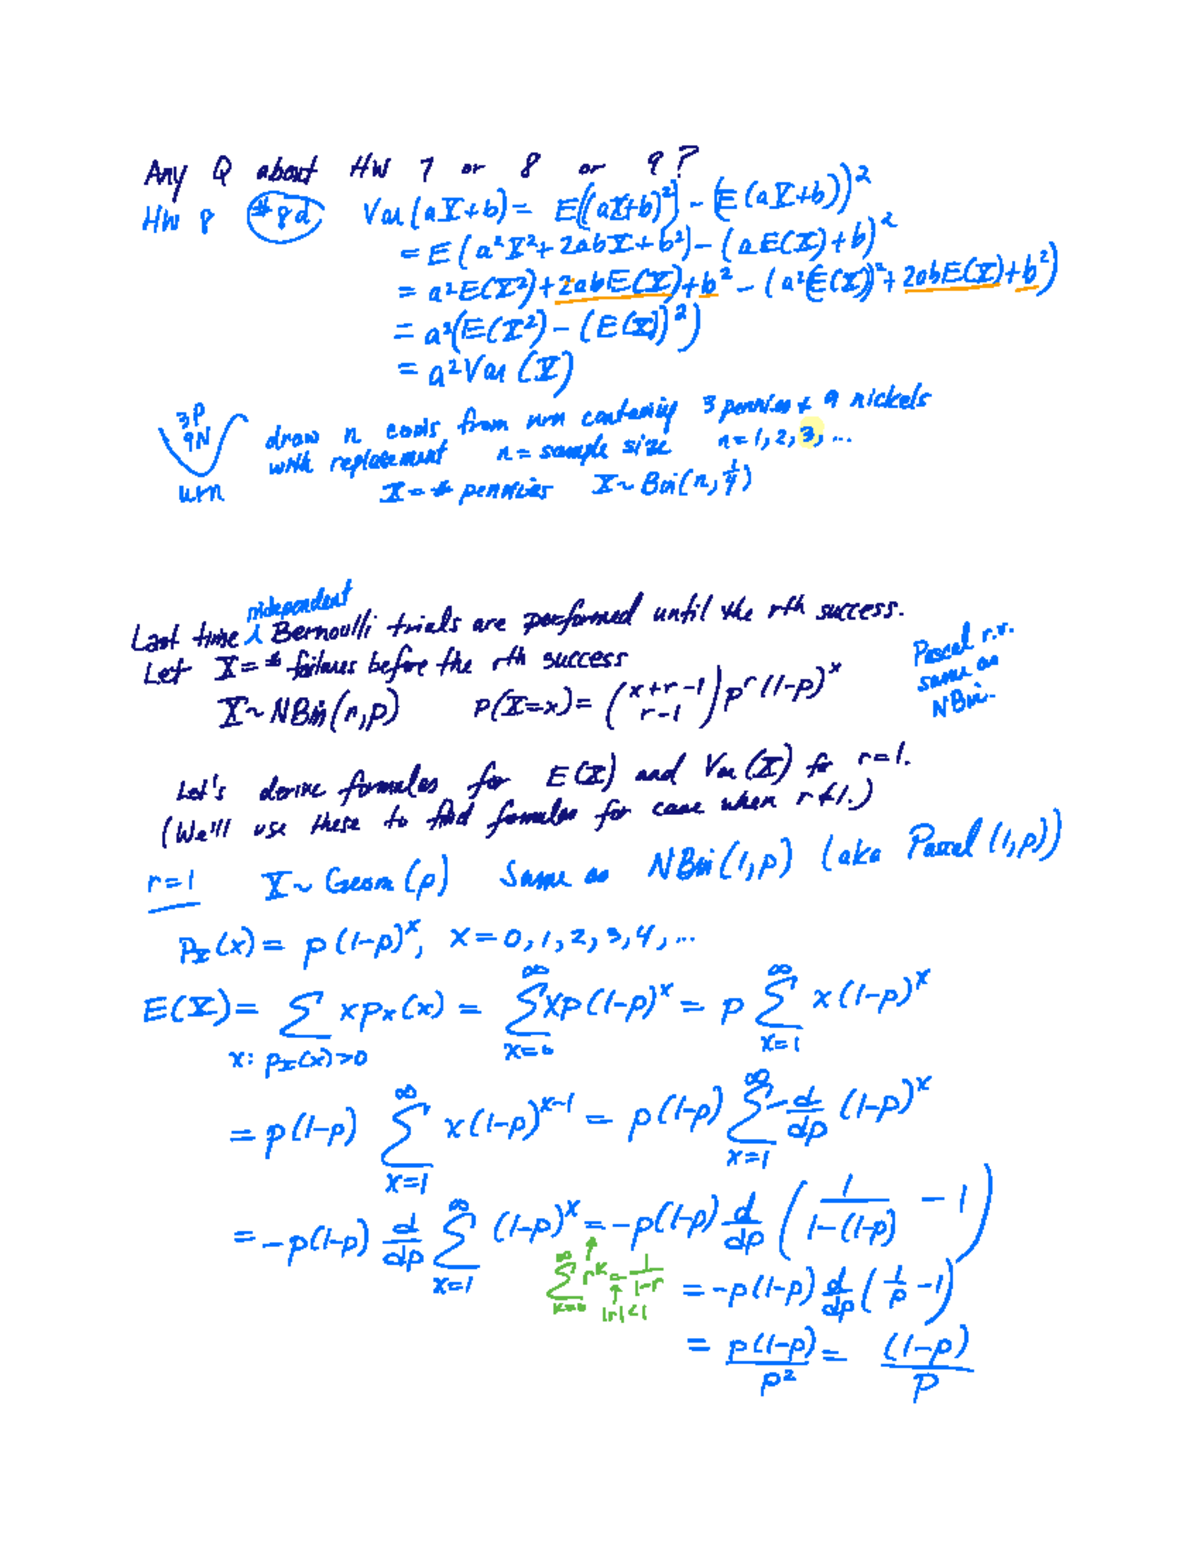 Any Q about HW 7 or 8 or 9?
HW 8 #8d Var(aX+b) = E((aX+b)²) - (E(aX+b))²
= E(a²X² + 2abX + b²) - (aE(X)+b)²
= a²E(X²) + 2abE(X) + b² - (a²(E(X))² + 2abE(X) + b²)
= a²(E(X²) - (E(X))²)
= a²Var(X)
3P
9N
urn
draw n coins from urn containing 3 pennies + 9 nickels
with replacement n = sample size n = 1, 2, 3, ...
X = # pennies X ~ Bin(n, 1/4)
independent
Last time Bernoulli trials are performed until the rth success.
Let X = # failures before the rth success
X ~ NBin(r,p) P(X=x) = (x+r-1 r-1) p^r (1-p)^x
Pascal r.v.
same as
NBin.
Let's derive formulas for E(X) and Var(X) for r=1.
(We'll use these to find formulas for case when r≠1.)
r=1 X ~ Geom(p) Same as NBin(1,p) (aka Pascal(1,p))
p_X(x) = p(1-p)^x, x = 0, 1, 2, 3, 4, ...
E(X) = Σ_{x: p_X(x)>0} x p_X(x) = Σ_{x=0}^∞ x p(1-p)^x = p Σ_{x=1}^∞ x(1-p)^x
= p(1-p) Σ_{x=1}^∞ x(1-p)^{x-1} = p(1-p) Σ_{x=1}^∞ -d/dp (1-p)^x
= -p(1-p) d/dp Σ_{x=1}^∞ (1-p)^x = -p(1-p) d/dp (1/(1-(1-p)) - 1)
Σ_{k=0}^∞ r^k = 1/(1-r)
|r|<1
= -p(1-p) d/dp (1/p - 1)
= p(1-p)/p² = (1-p)/p